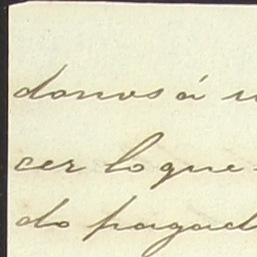 donos á
cer lo que
do pagad